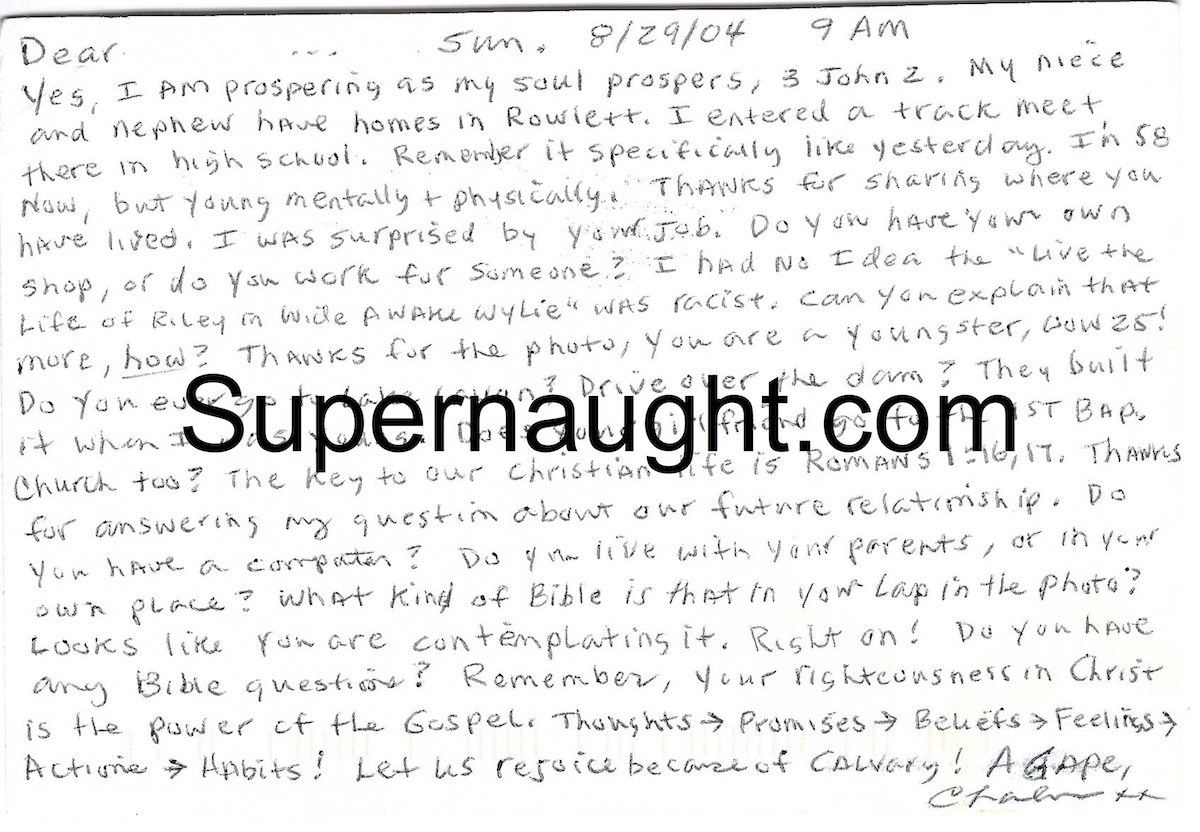 Dear ... Sun. 8/29/04 9 AM
Yes, I AM prospering as my soul prospers, 3 John 2. My niece
and nephew have homes in Rowlett. I entered a track meet
there in high school. Remember it specifically like yesterday. I'm 58
Now, but young mentally + physically. THANKS for sharing where you
have lived. I was surprised by your Job. Do you have your own
shop, or do you work for someone? I had No Idea the "Live the
Life of Riley in Wide AWAKE Wylie" was racist. Can you explain that
more, how? THANKS for the photo, you are a youngster, wow 25!
Do you ever go to Lake Lavon? Drive over the dam? They built
it when I was young. Does your girlfriend go to the 1ST BAP.
Church too? The key to our Christian life is Romans 1:16,17. THANKS
for answering my question about our future relationship. Do
you have a computer? Do you live with your parents, or in your
own place? What kind of Bible is that in your Lap in the photo?
Looks like you are contemplating it. Right on! Do you have
any Bible questions? Remember, your righteousness in Christ
is the power of the Gospel. Thoughts → Promises → Beliefs → Feelings →
Actions → Habits! Let us rejoice because of Calvary! AGAPE,
Supernaught.com